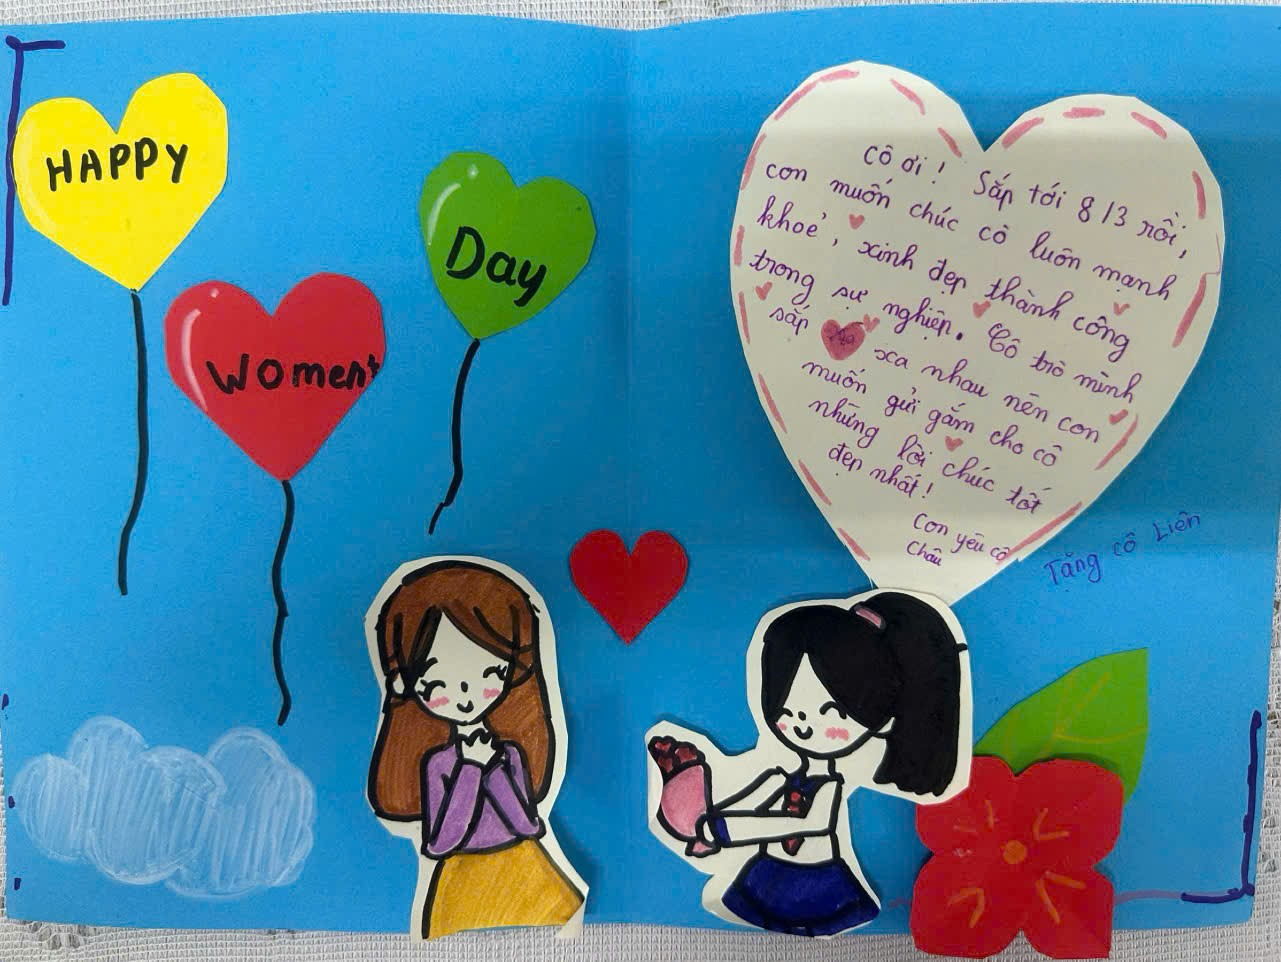 HAPPY
Woment
Day
Cô ơi! Sắp tới 8/3 rồi,
con muốn chúc cô luôn mạnh
khoẻ, xinh đẹp thành công
trong sự nghiệp. Cô trò mình
sắp xa nhau nên con
muốn gửi gắm cho cô
những lời chúc tốt
đẹp nhất!
Con yêu cô
Châu
Tặng cô Liên